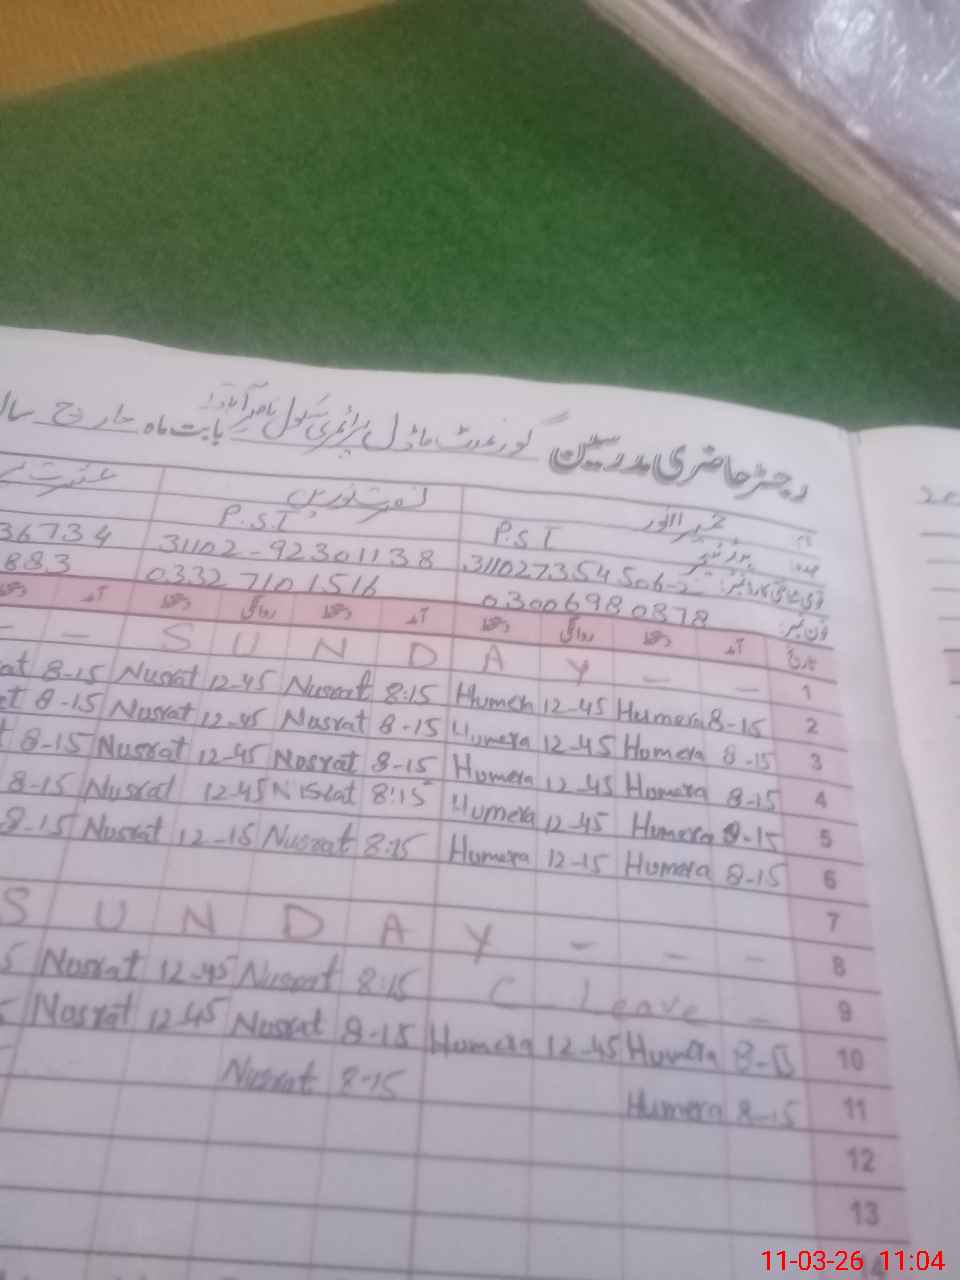 رجسٹر حاضری مدرسین گورنمنٹ ماڈل پرائمری سکول بابت ماہ مارچ سال
نام
عہدہ P.S.T P.S.T
31102-92301138 36734
0300 6980878 0332 7101516 883
تاریخ آمد دستخط روانگی دستخط آمد دستخط روانگی دستخط آمد دستخط
1 — — Y A D N U S — —
2 8-15 Humera 12-45 Humera 8:15 Nusrat 12-45 Nusrat 8-15
3 8-15 Homera 12-45 Humera 8-15 Nusrat 12-45 Nusrat 8-15
4 8-15 Homera 12-45 Humera 8-15 Nosrat 12-45 Nusrat 8-15
5 8-15 Humera 12-45 Humera 8:15 12-45 Nusrat 8-15
6 8-15 Humera 12-15 Humera 8:15 Nusrat 12-15 Nusrat 8-15
7
8 — — — Y A D N U S
9 — Leave C 8:15 Nusrat 12-45 Nusrat
10 Humera 12-45 Homera 8-15 Nusrat 12-45 Nosrat
11 8-15 Humera 8-15 Nusrat
12
13
11-03-26 11:04